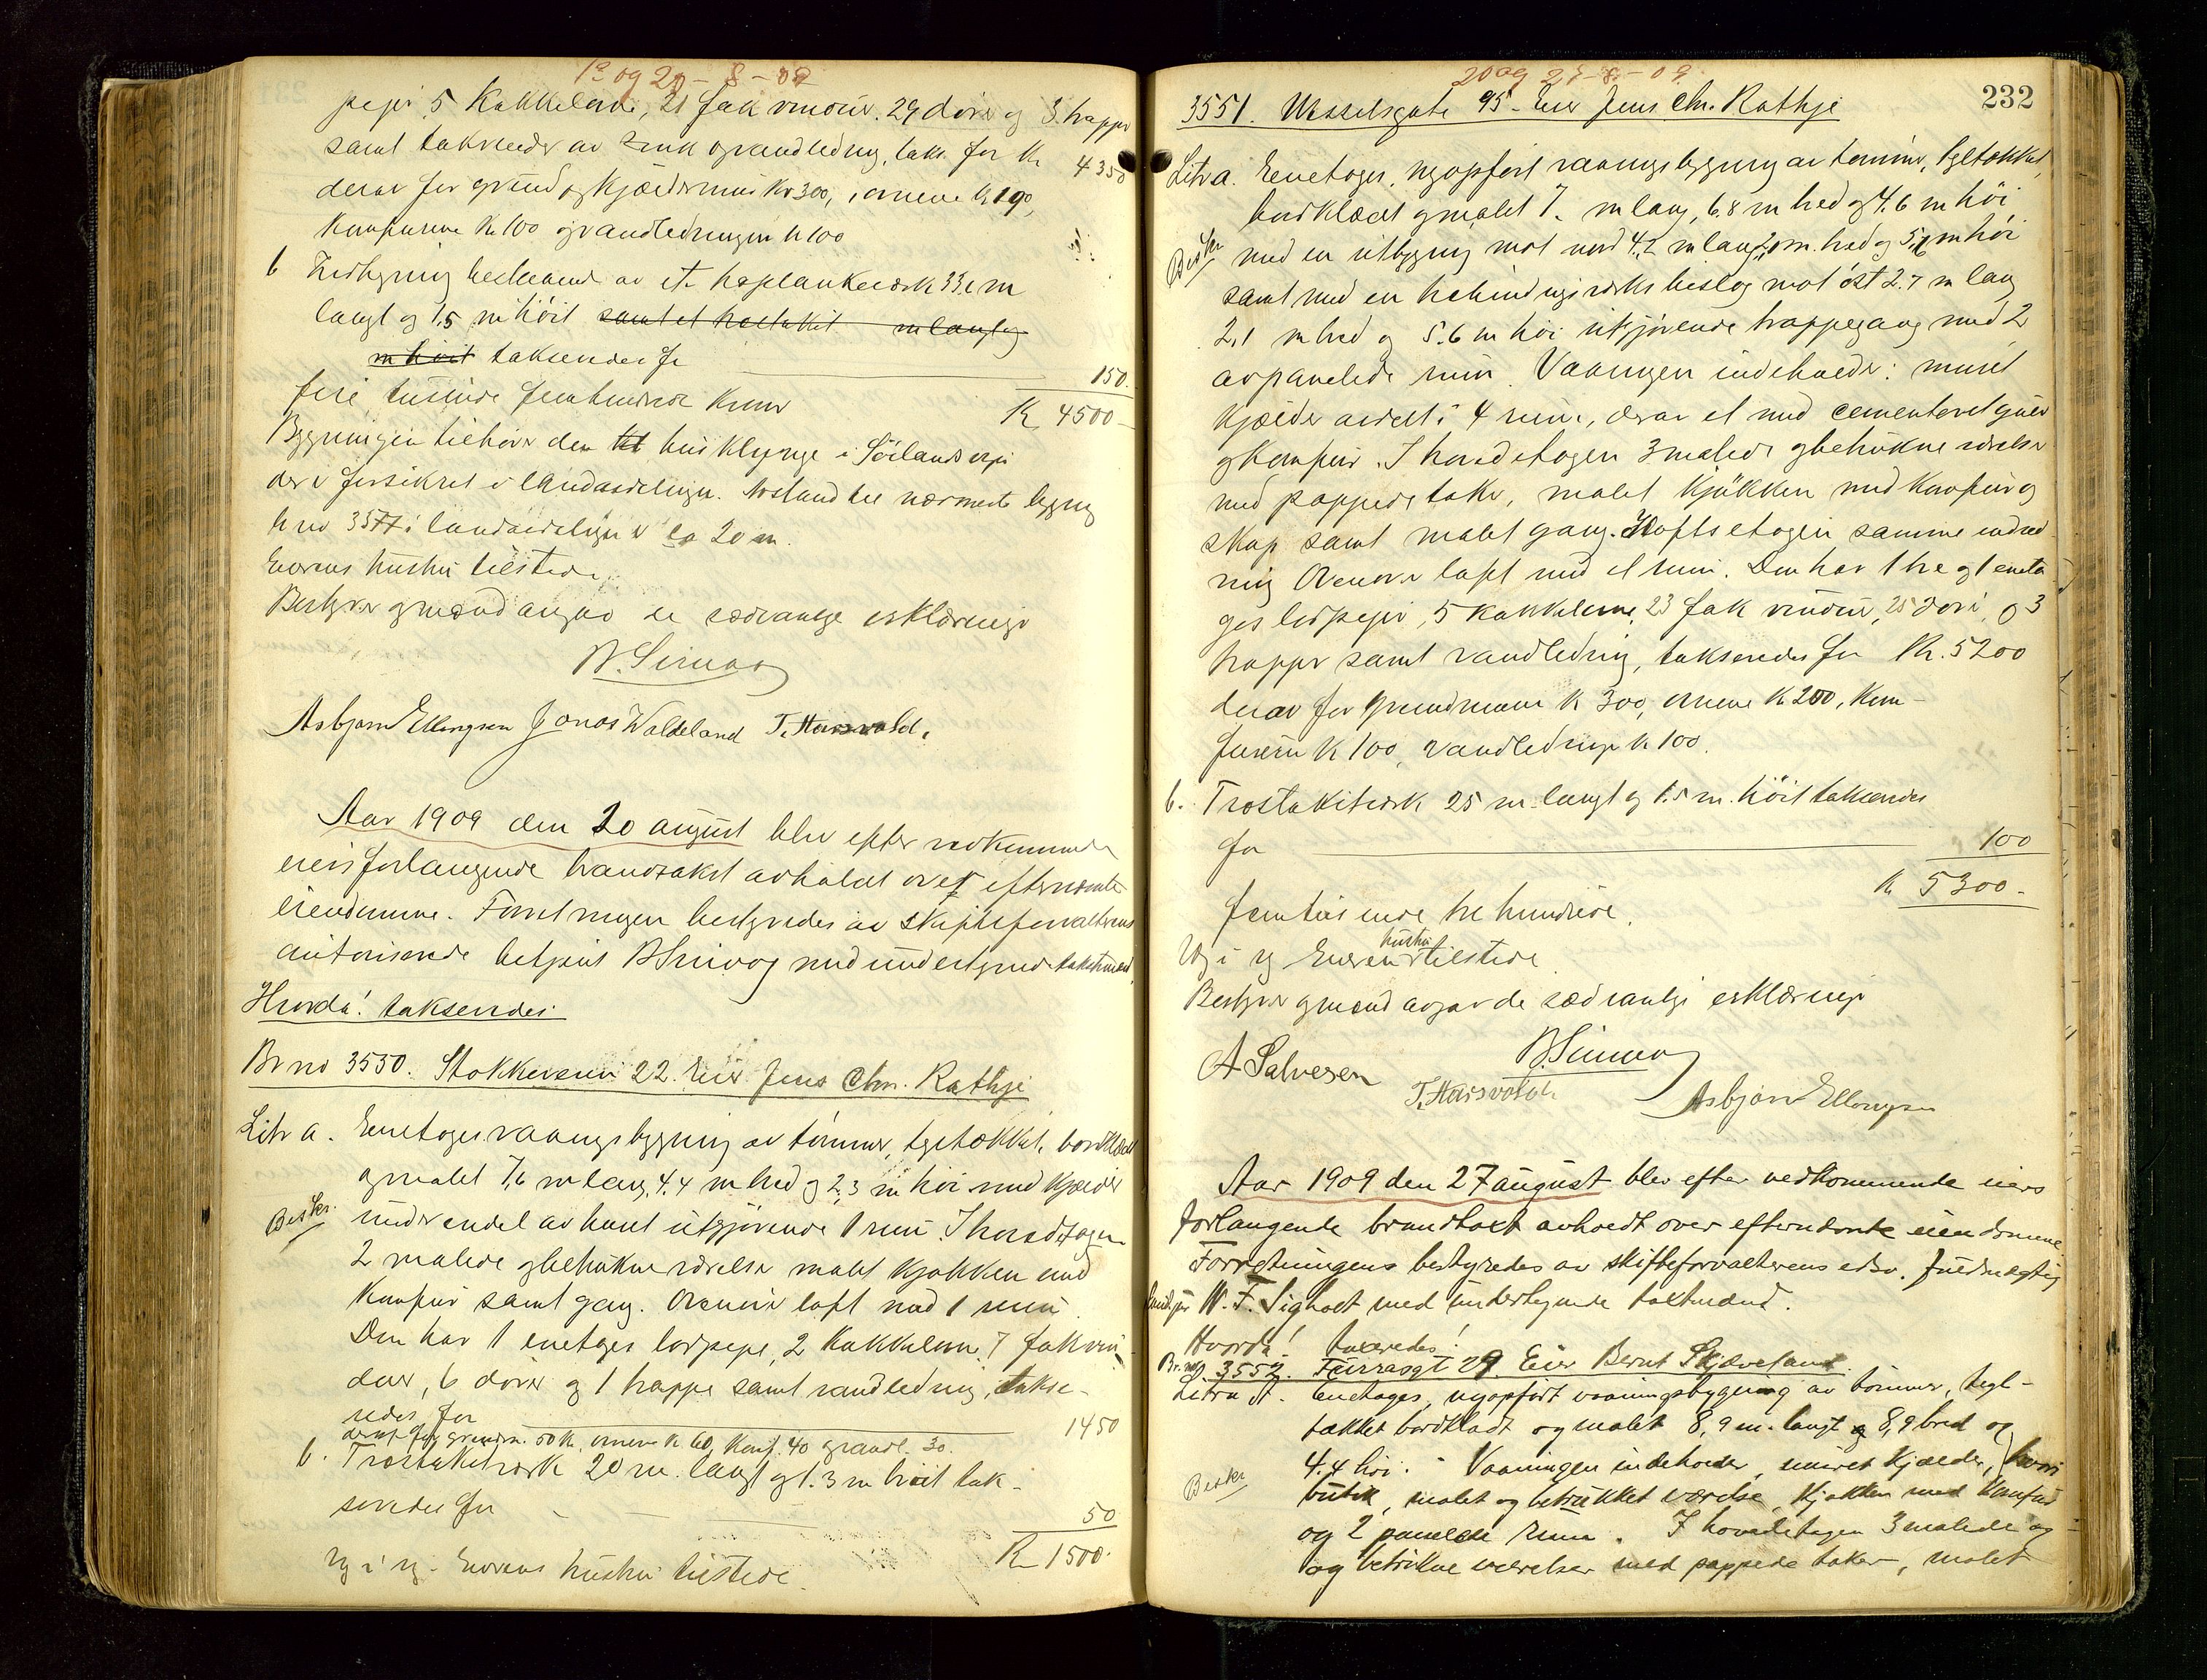 19 og 20 - 8 - 09
peper 5 Kakkelovne, 21 fak vinduer, 29 döre og 3 trappe
samt takrender av zink og vandledning, taks for Kr 4350
derav for grund og kjældermur Kr 300, ovnene Kr 190,
komfurene Kr 100 og vandledningen kr 100
b Indhegning bestaaende av et plankeværk 33,1 m
langt og 1,5 m höit samt et trostakit m langt og
m höit takseredes for 150.
fire tusinde femhundrede kroner Kr 4500 -
Bygningen tilhörer den husklynge i
der er forsikret i landavdelingen. Avstand til nærmeste bygning
br no 3577 i landavdelingen er ca 20 m.
Eierens hustru tilstede.
Bestyrer og mænd avgav de sædvanlige erklæringer
Asbjørn Ellingsen Jonas Waldeland T. Haarsvold.
Aar 1909 den 20 august blev efter vedkommende
eiers forlangende brandtakst avholdt over efternævnte
eiendomme. Forretningen bestyredes av skifteforvalterens
autoriserede betjent med undertegnede takstmænd.
Hvorda! takseredes:
Br no 3550. Stokkeveien 22. Eier Jens Chr. Rathje
Litr a. Enetages vaaningsbygning av tømmer, tegltækket, bordklædt
og malet 7,6 m lang, 4,4 m bred og 2,3 m höi med kjælder
Beskr. under endel av huset utgjörende 1 rum. I hovedetagen
2 malede og betrukne værelser malet kjøkken med
komfur samt gang. Ovenover loft med 1 rum
Den har 1 enetages lodpipe, 2 kakkelovne, 7 fak vin-
duer, 6 dörer og 1 trappe samt vandledning, takse-
redes for 1450
derav for grundm. 50 kr, ovnene kr 60, komf. 40 og vandl. 30.
b. Trostakitværk 20 m. langt og 1.3 m höit tak-
seredes for 50
Kr 1500.
Eierens hustru tilstede.
20 og 27-8-09
232
3551. Wesselsgate 95 - Eier Jens Chr. Rathje
Litr a. Enetages, nyopfört vaaningsbygning av tømmer, tegltækket,
bordklædt og malet 7. m lang, 6,8 m bred og 4.6 m höi
Beskr med en utbygning mot nord 4.2 m lang, m. bred og 5,6 m höi
samt med en bislag mot öst 2.7 m lang
2,1 m bred og 5.6 m höi utgjörende trappegang med 2
avpanelede rum. Vaaningen indeholder: muret
kjælder avdelt i 4 rum, derav et med cementeret gulv
og komfur. I hovedetagen 3 malede og betrukne værelser
med pappede take, malet kjökken med komfur og
skap samt malet gang. I loftsetagen samme indred-
ning Ovenover loft med et rum. Den har 1 tre og 1 eneta
ges lodpiper, 5 kakkelovne, 23 fak vinduer, 25 döre, og 3
trapper samt vandledning, takseredes for Kr. 5200
derav for grundmuren Kr 300, ovnene Kr 200, kom-
furene Kr 100, vandledningen kr 100.
b. Trostakitværk 25 m langt og 1.5 m. höit takseredes
for 100
Kr 5300.-
femtusinde trehundrede.
Eierens hustru tilstede.
Bestyrer og mænd avgav de sædvanlige erklæringer
A Salvesen
T. Haarsvold Asbjørn Ellingsen
Aar 1909 den 27 august blev efter vedkommende eiers
forlangende brandtaxt avholdt over efternævnte eiendomme.
Forretningens bestyredes av skifteforvalterens edsv. fuldmægtig
W. F. Sigholt med undertegnede taxtmænd.
Hvorda! taxeredes!
Br. no. 3552. Furrasgt 29 Eier Bernt Skjæveland.
Litra A. Enetages, nyopført vaaningsbygning av tömmer, tegl-
tækket bordklædt og malet 8,9 m. langt og 8,9 bred og
4.4 höi. Vaaningen indeholder muret kjælder, hvori
Beskr butik, malet og betrukket værelse, kjøkken med komfur
og 2 panelede rum. I hovedetagen 3 malede og
og betrukne værelser med pappede taker, malet